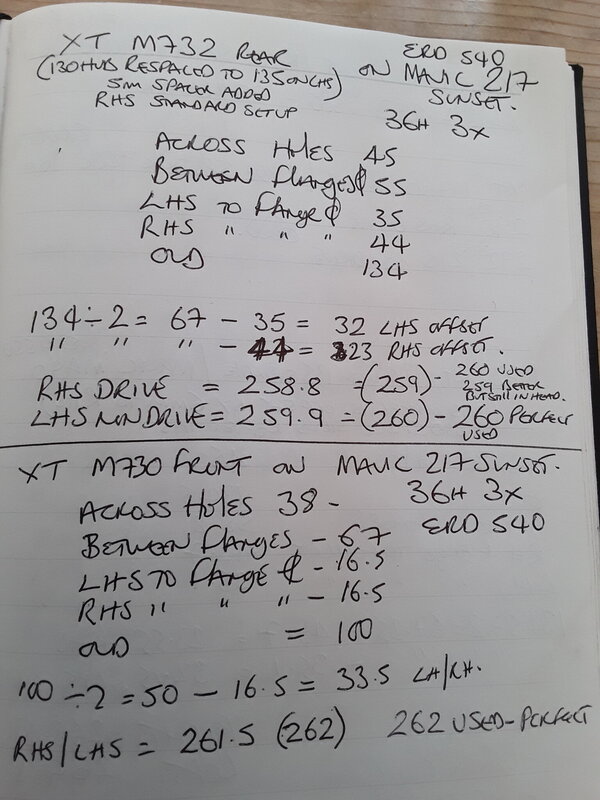 XT M732 REAR
(130 HUB RESPACED TO 135 ON LHS)
5mm SPACER ADDED
RHS STANDARD SETUP
ERD 540
ON MAVIC 217
SUNSET.
36H 3X
ACROSS HOLES 45
BETWEEN FLANGES ₵ 55
LHS TO FLANGE ₵ 35
RHS " " " 44
OLD 134
134 ÷ 2 = 67 - 35 = 32 LHS OFFSET
" " " - 44 = 23 RHS OFFSET.
RHS DRIVE = 258.8 = (259) - 260 USED
259 BETTER
BUT STILL IN HEAD.
LHS NON DRIVE = 259.9 = (260) - 260 PERFECT
USED
XT M730 FRONT ON MAVIC 217 SUNSET.
36H 3X
ERD 540
ACROSS HOLES 38 -
BETWEEN FLANGES - 67
LHS TO FLANGE ₵ - 16.5
RHS " " " - 16.5
OLD = 100
100 ÷ 2 = 50 - 16.5 = 33.5 LH/RH.
RHS/LHS = 261.5 (262) 262 USED - PERFECT